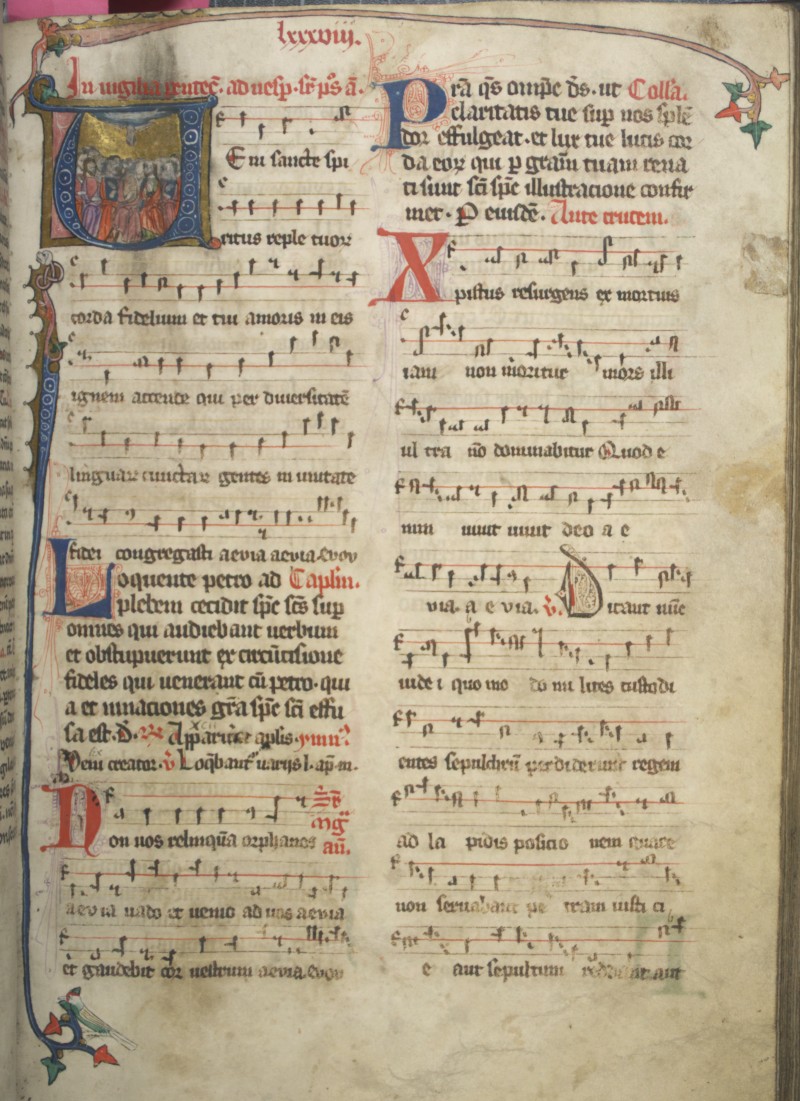 lxxxviii.
In vigilia pentec̄. ad uesp. sr̄ ps̄ a.
Eni sancte spi
ritus reple tuoꝝ
corda fidelium et tui amoris in eis
ignem accende qui per diuersitatē
linguaꝝ cunctaꝝ gentes in unitate
fidei congregasti aeuia aeuia. euou
Loquente petro ad Caplm̄.
plebem cecidit sp̄c sc̄s sup
omnes qui audiebant uerbum
et obstupuerunt ex circūcisione
fideles qui uenerant cū petro. qui
a et in nationes gr̄a sp̄c sc̄i effu
sa est. D̄. ℟ Apparuer̄ aplis. ymn᷒
Veni creator. v̄ Loq̄bant᷒ uarijs l. ap̄ m.
Non uos relinquā orphanos
aū.
aeuia uado et uenio ad uos aeuia
et gaudebit cor uestrum aeuia. euou
Pra q̄s omp̄c d̄s. ut Colla.
claritatis tue sup nos splē
dor effulgeat. et lux tue lucis cor
da eoꝝ qui ꝑ gram̄ tuam rena
ti sunt sc̄i sp̄c illustracione confir
met. P eiusdē. Ante crucem.
Xpistus resurgens ex mortuis
iam non moritur mors illi
ul tra nō dominabitur Quod e
nim uiuit uiuit deo a e
via. a e via. v̄. Dicant nūc
iude i quo mo do mi lites custodi
entes sepulchrū perdiderunt regem
ad la pidis posicio nem quare
non seruabant pe tram iusti ci
e aut sepultum reddant aut